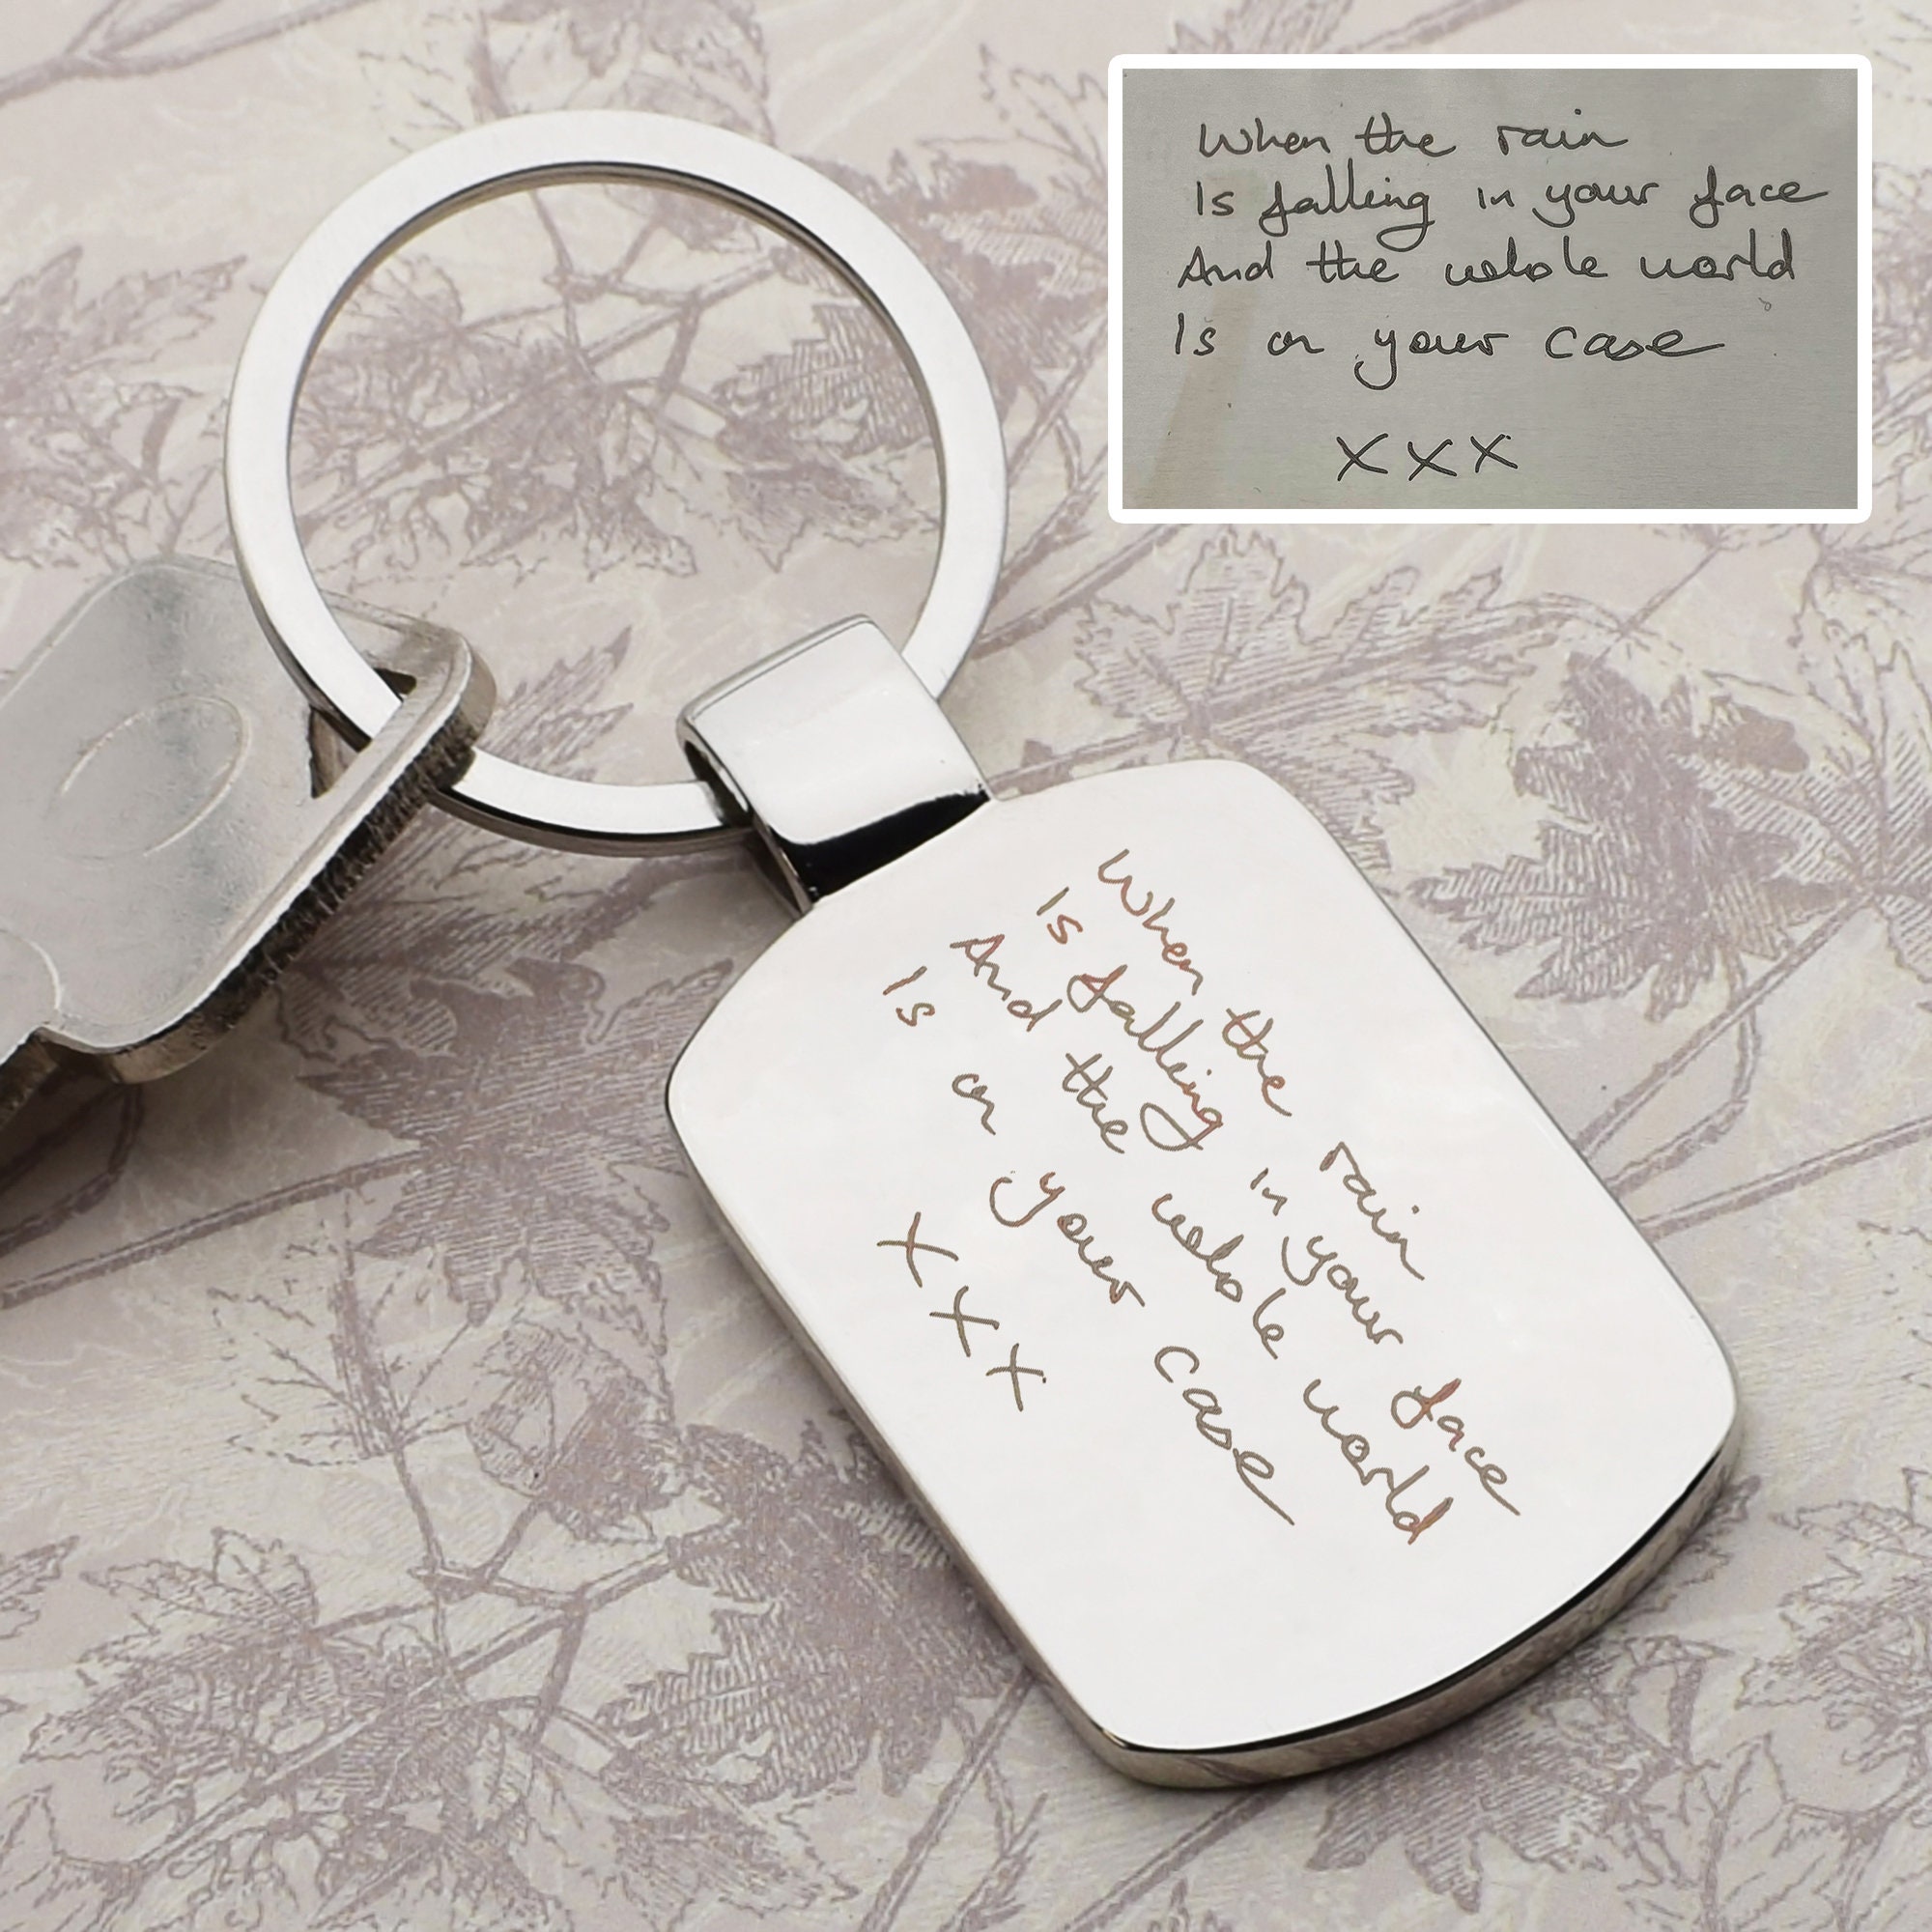 When the rain
Is falling in your face
And the whole world
Is on your case
xxx
When the rain
Is falling in your face
And the whole world
Is on your case
xxx